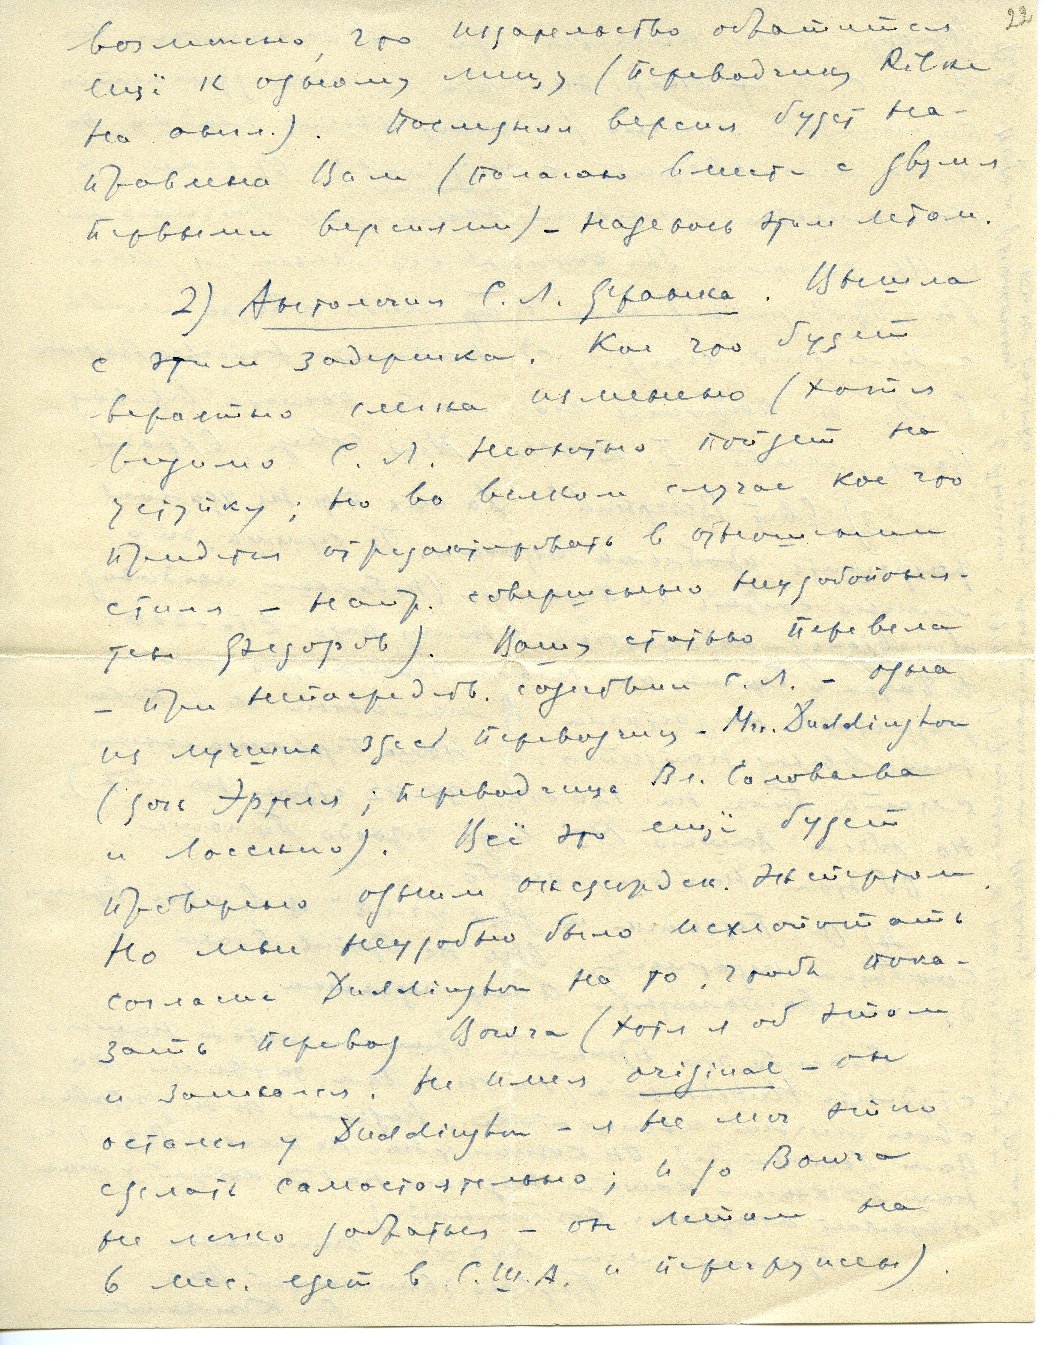 22
возможно, что издательство обратится
ещё к одному лицу (переводчику Rilke
на англ.). Последняя версия будет на-
правлена Вам (полагаю вместе с двумя
первыми версиями) – надеюсь этим летом.
2) Антология С. Л. Франка. Вышла
с этим задержка. Кое что будет
вероятно слегка изменено (хотя
видимо С. Л. неохотно пойдет на
уступку; но во всяком случае кое что
придется отредактировать в отношении
стиля – напр. совершенно неудобопонят-
тен Федоров). Вашу статью перевела
– при непосредств. содействии С. Л. – одна
из лучших здесь переводчиц – Mrs. Duddington
(дочь Эртеля; переводчица Вл. Соловьева
и Лосского). Всё это ещё будет
проверено одним оксфордск. экспертом.
Но мне неудобно было исхлопотать
согласие Duddington на то, чтобы пока-
зать перевод Bowra (хотя я об этом
и заикался. Не имея original – он
остался у Duddington – я не мог этого
сделать самостоятельно; и до Bowra
не легко добраться – он летом на
6 мес. едет в С.Ш.А. и перегружен).